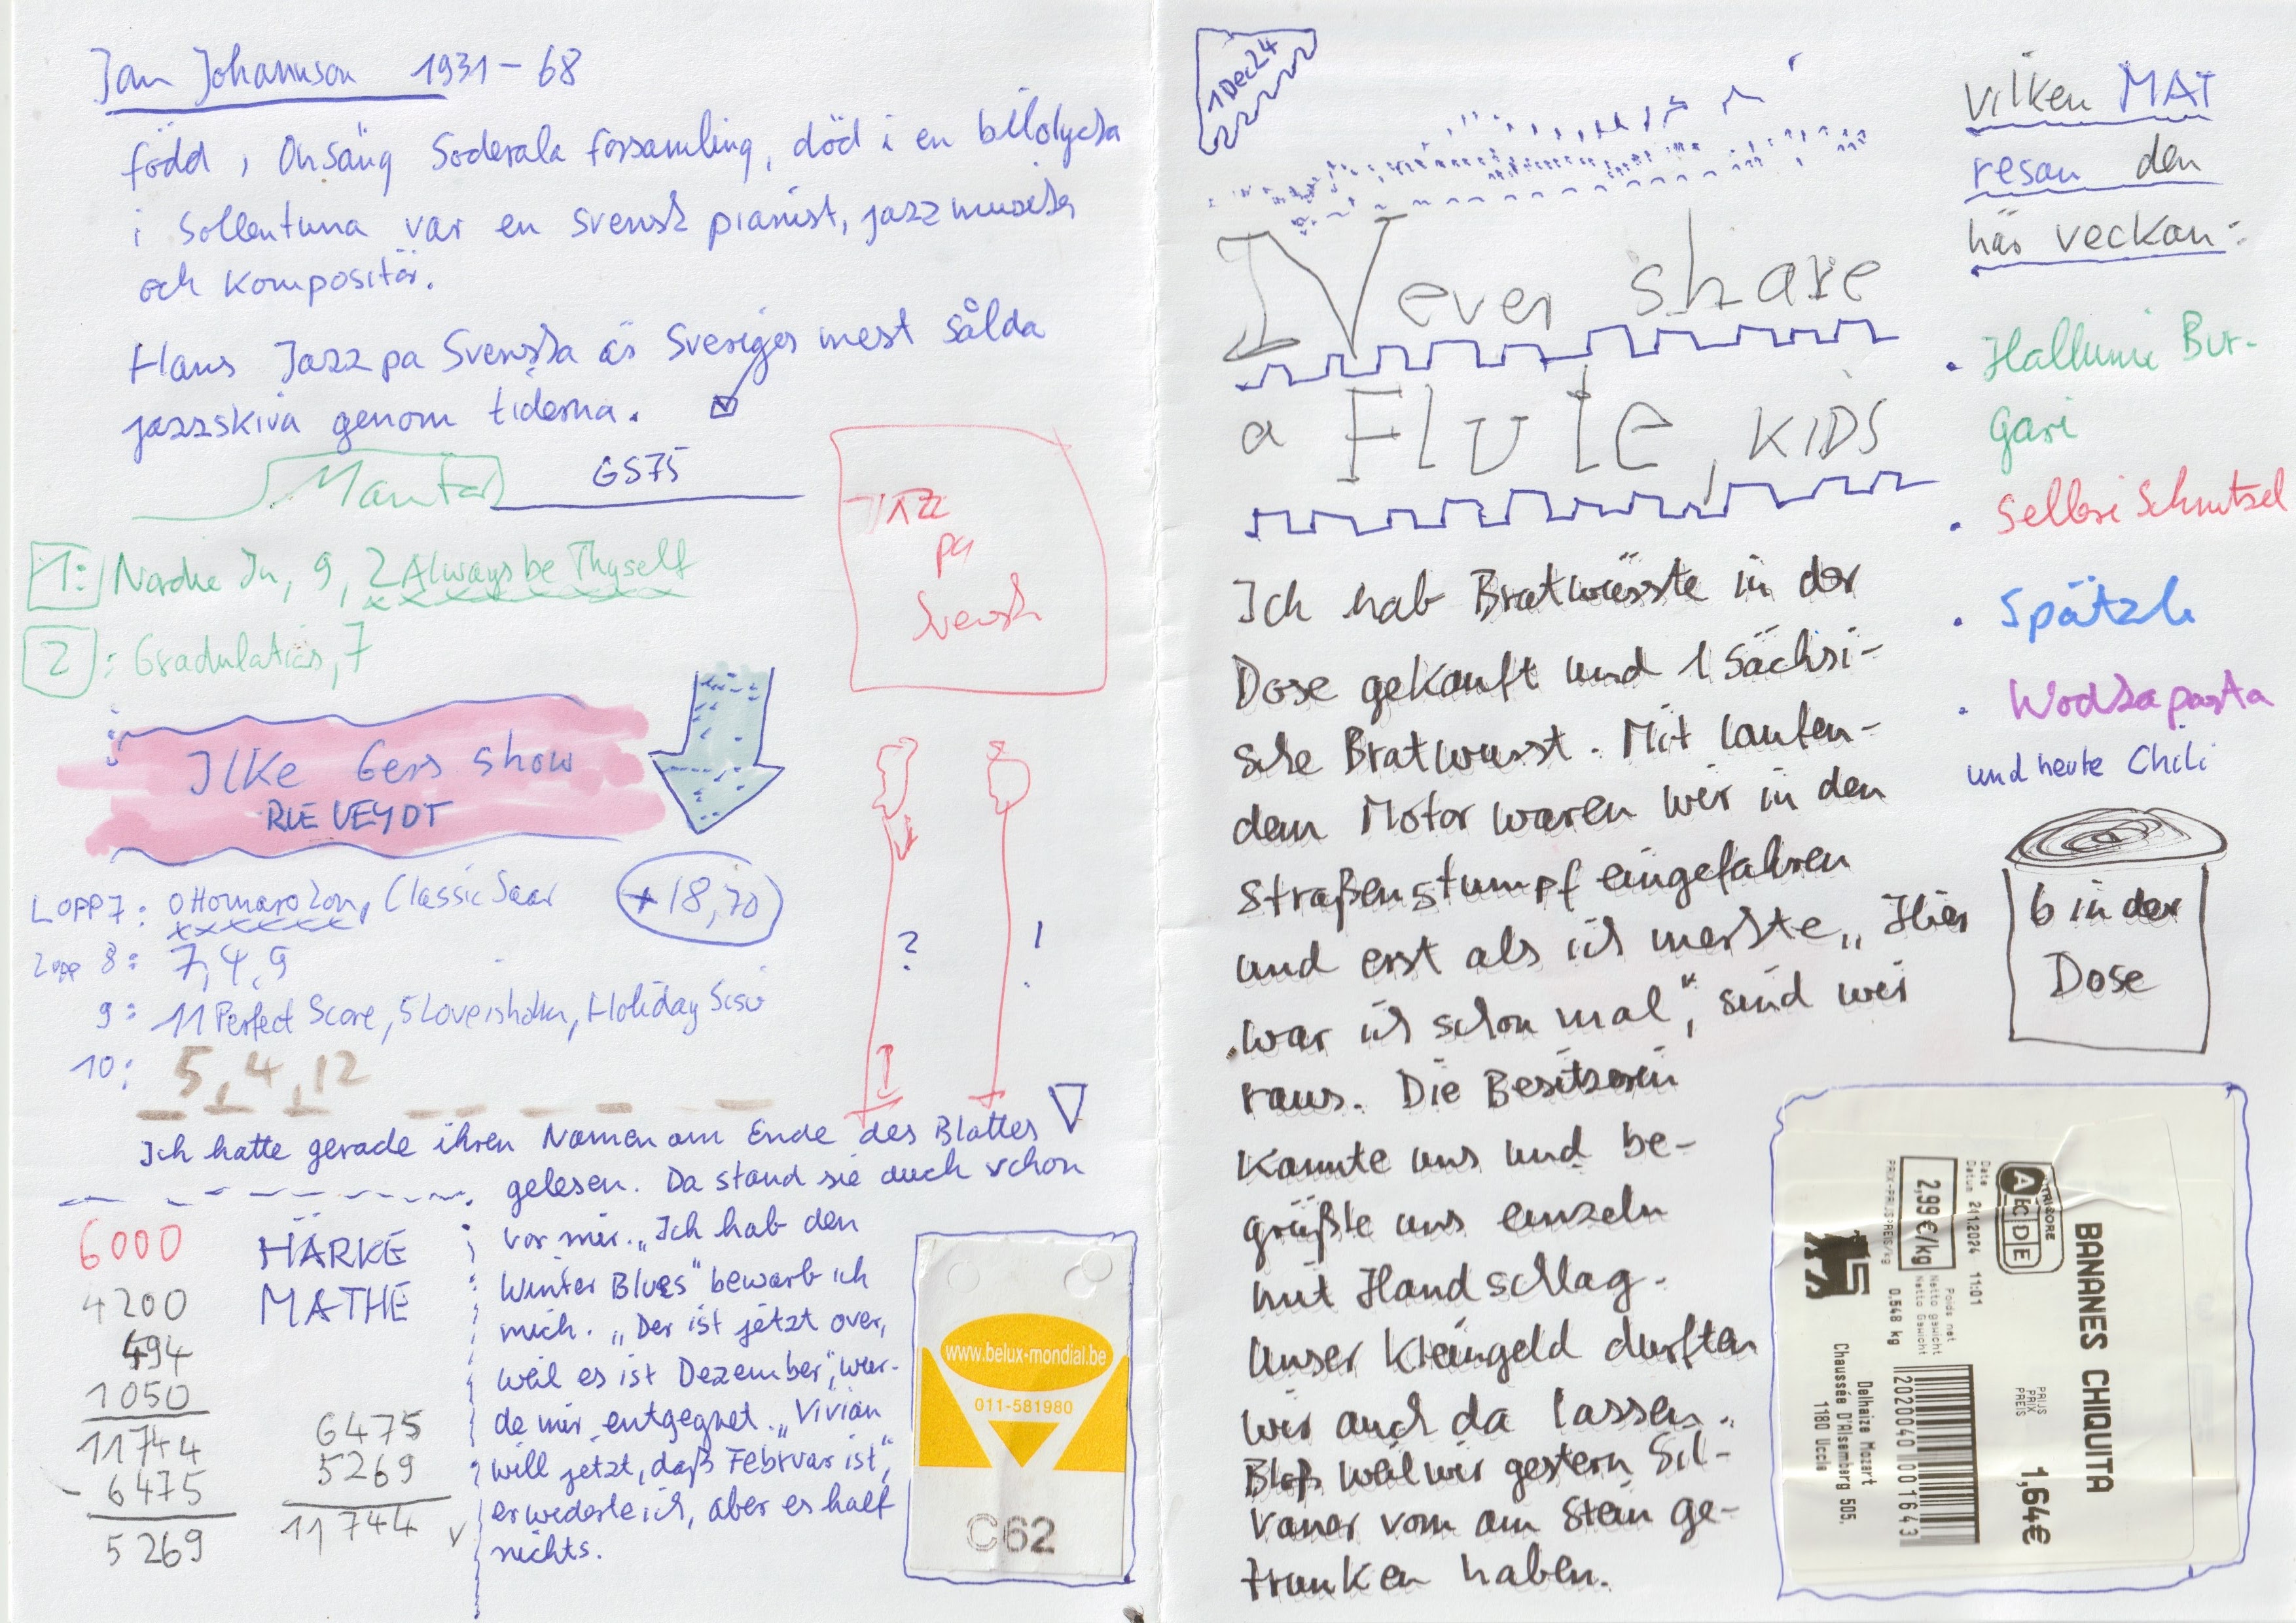 Jan Johansson 1931-68
född i Onsäng Söderala församling, död i en bilolycka
i Sollentuna var en svensk pianist, jazzmusiker
och kompositör.
Hans Jazz pa Svenska är Sveriges mest sålda
jazzskiva genom tiderna.
Mantar GS75
1: Nordie In, 9, 2 Always be Thyself
2: Gradulatias, 7
JAZZ
pa
Svensk
Ilke Gers show
RUE VEYDT
LOPP 7: Classic Saar
+18,70
Lopp 8: 7, 4, 9
9: 11 Perfect Score, 5 Holiday Sisu
10: 5, 4, 12
? !
Ich hatte gerade ihren Namen am Ende des Blattes
gelesen. Da stand sie auch schon
vor mir. „Ich hab den
Winter Blues" bewarb ich
mich. „Der ist jetzt over,
weil es ist Dezember", wur-
de mir entgegnet. „Vivian
will jetzt, daß Februar ist",
erwiderte ich, aber es half
nichts.
6000
4200
494
1050
11744
- 6475
5269
HÄRKE
MATHE
6475
5269
11744 v
www.belux-mondial.be
011-581980
C62
1 Dec 24
Never share
a Flute, KIDS
Ich hab Bratwürste in der
Dose gekauft und 1 Sächsi-
sche Bratwurst. Mit laufen-
dem Motor waren wir in den
Straßenstumpf eingefahren
und erst als ich merkte „Hier
war ich schon mal", sind wir
raus. Die Besitzerin
kannte uns und be-
grüßte uns einzeln
mit Handschlag.
Unser Kleingeld durften
wir auch da lassen.
Bloß weil wir gestern Sil-
vaner vom am Stein ge-
trunken haben.
vilken MAT
resan den
här veckan:
• Hallumi Bur-
gari
• Sellerischnitsel
• Spätzle
• Wodkapasta
und heute Chili
6 in der
Dose
BANANES CHIQUITA
PRIJS
PRIX
PREIS
1,64€
NUTRI-SCORE
A B C D E
Date
Datum 2.11.2024 11:01
Poids net
Netto gewicht
Netto Gewicht
2,99€/kg
0.548 kg
PRIX-PRIJS-PREIS/kg
2020040001643
Delhaize Mozart
Chaussée D'Alsemberg 505,
1180 Uccle